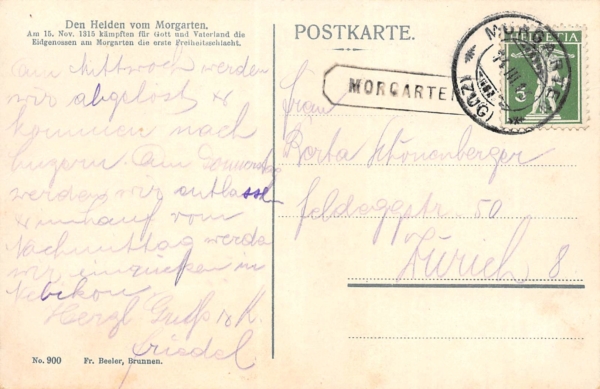 Den Helden vom Morgarten.
Am 15. Nov. 1315 kämpften für Gott und Vaterland die
Eidgenossen am Morgarten die erste Freiheitsschlacht.
Am Mittwoch werden
wir abgelöst &
kommen nach
Luzern. Am Donnerstag
werden wir entlassen
& vom
Nachmittag werden
wir einrücken in
Nebikon
Herzl Gruss v. K.
Friedel
No. 900
Fr. Beeler, Brunnen.
POSTKARTE.
MORGARTEN
MORGARTEN
(ZUG)
HELVETIA
5
Frau
Berta Schönenberger
Feldeggstr. 50
Zürich 8